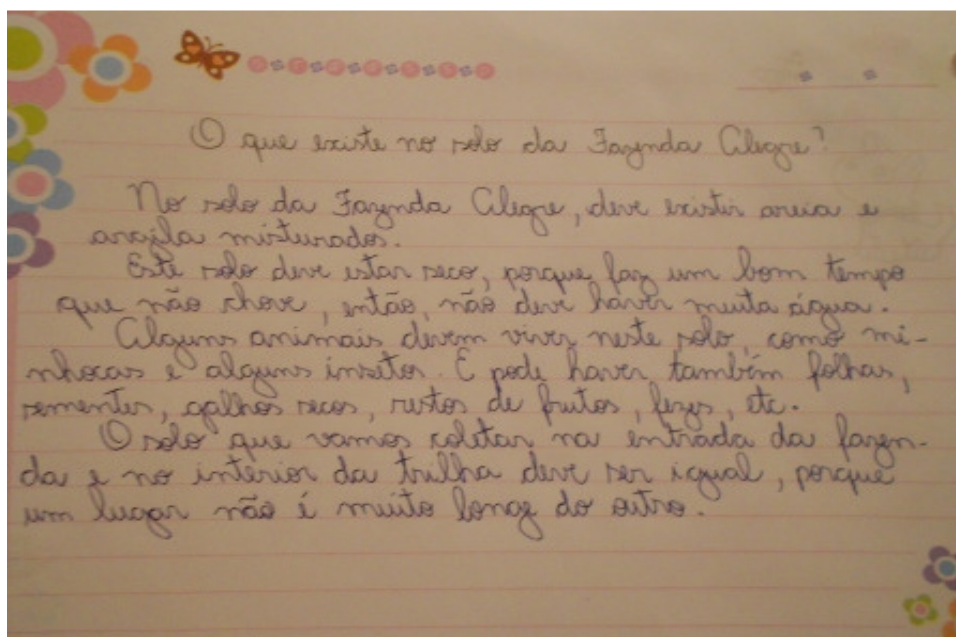 O que existe no solo da Fazenda Alegre?
No solo da Fazenda Alegre, deve existir areia e
argila misturados.
Este solo deve estar seco, porque faz um bom tempo
que não chove, então, não deve haver muita água.
Alguns animais devem viver neste solo, como mi-
nhocas e alguns insetos. E pode haver também folhas,
sementes, galhos secos, restos de frutos, fezes, etc.
O solo que vamos coletar na entrada da fazen-
da e no interior da trilha deve ser igual, porque
um lugar não é muito longe do outro.